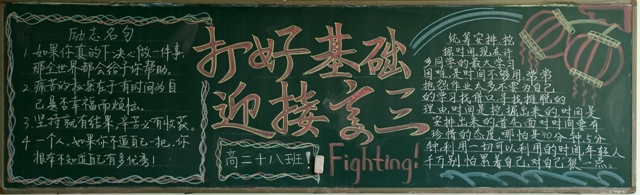 励志名句
1、如果你真的下决心做一件事,
那全世界都会给予你帮助。
2、痛苦的秘密在于有时间为自
己是否幸福而烦恼。
3、坚持就有结果,辛苦必有收获。
4、一个人,如果你不逼自己一把,你
根本不知道自己有多优秀!
打好基础
迎接高三
高二十八班!
Fighting!
统筹安排,挖
掘时间,现在许
多同学的最大学习
困难是时间不够用,常常
抱怨作业太多不要为自己
的学习找借口,寻找推脱的
理由时间是挖掘出来的,时间是
安排出来的。在心态上对时间要有
珍惜的态度,哪怕是10分钟、5分
钟,利用一切可以利用的时间,年轻人
千万别怕累着自己,对自己狠一点。